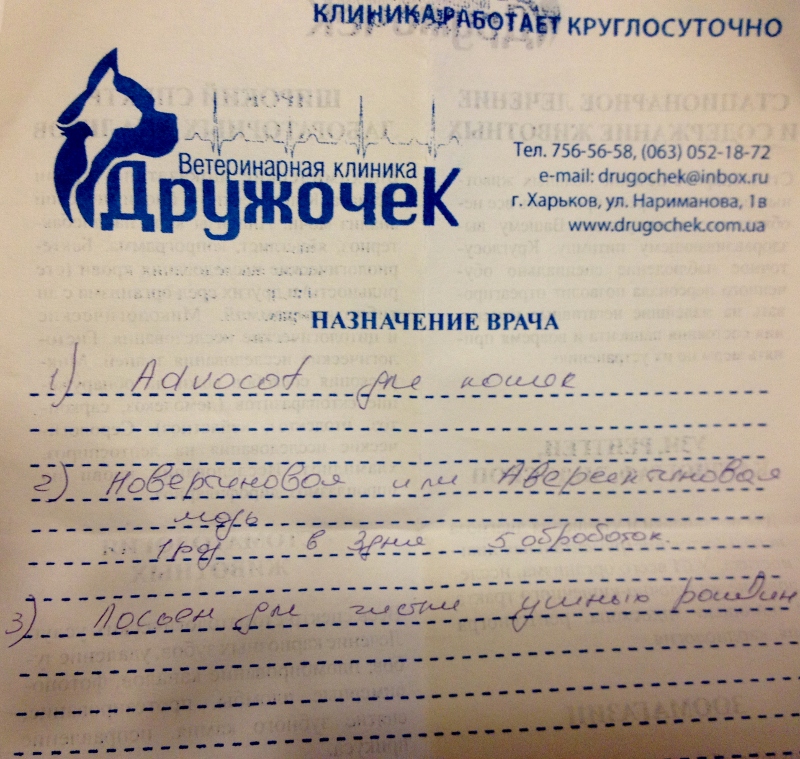 КЛИНИКА РАБОТАЕТ КРУГЛОСУТОЧНО
Ветеринарная клиника
ДружочеК
Тел. 756-56-58, (063) 052-18-72
e-mail: drugochek@inbox.ru
г. Харьков, ул. Нариманова, 1в
www.drugochek.com.ua
НАЗНАЧЕНИЕ ВРАЧА
1) Advocat для кошек
2) или Аверсектиновая
мазь
1 раз в 3 дня 5 обработок.
3) Лосьен для чистки ушных раковин